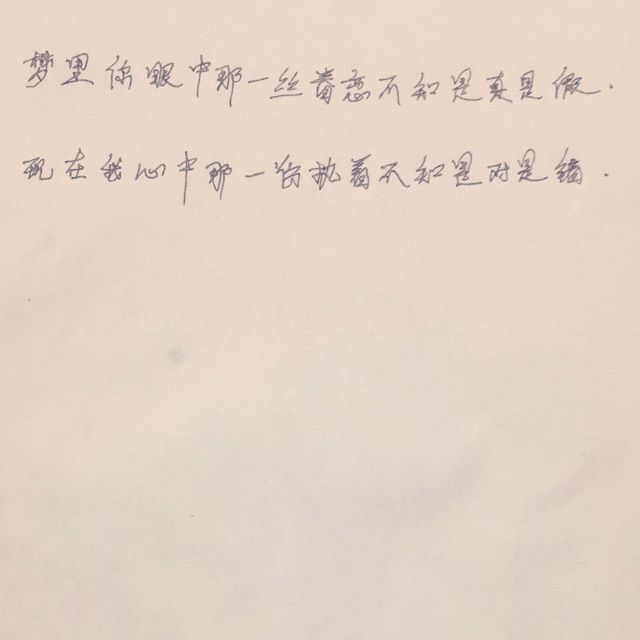 梦里你眼中那一丝眷恋不知是真是假.
现在我心中那一份执着不知是对是错.